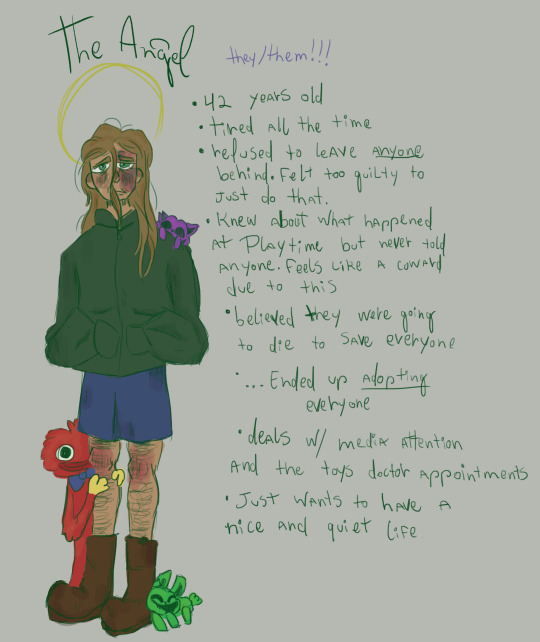 The Angel
they/them!!!
• 42 years old
• tired all the time
• refused to leave anyone
behind. Felt too guilty to
just do that.
• Knew about what happened
at Playtime but never told
anyone. Feels like a coward
due to this
• believed they were going
to die to save everyone
• ... Ended up adopting
everyone
• deals w/ media attention
and the toys doctor appointments
• Just wants to have a
nice and quiet life